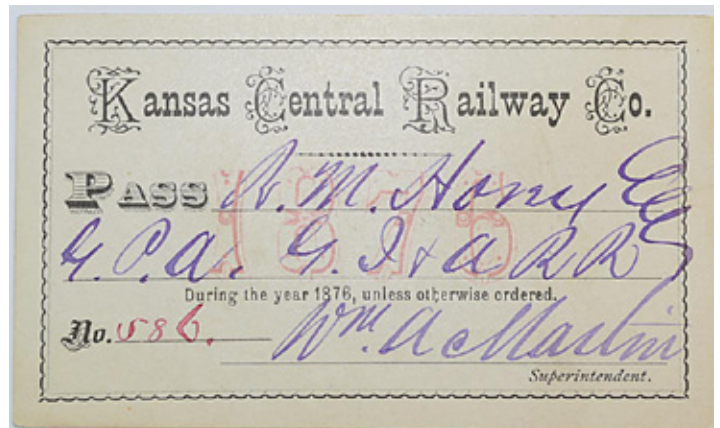 Kansas Central Railway Co.
PASS A. M. Hony Esq
G. P. A. G. I & A R R
1876
During the year 1876, unless otherwise ordered.
No. 586.
Wm. A
Superintendent.